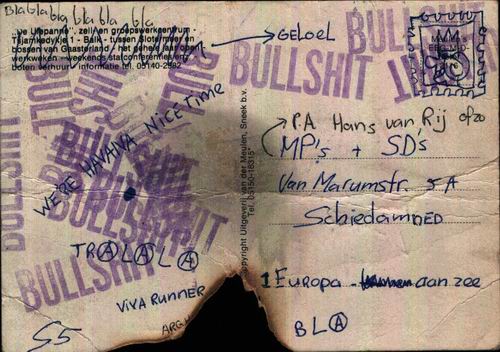 BlaBlaBla bla bla bla
"De Ulepanne", zeil- en groepswerkcentrum -
Tsjamkedykje 1 - Balk - tussen Slotermeer en
bossen van Gaasterland - het gehele jaar open
werkweken - weekends staf conferenties/en
boten verhuur informatie tel. 05140-2982
→ GELOEL
BULLSHIT
BULLSHIT
BULLSHIT
BULLSHIT
WE'RE HAVANA NICE TIME
BULLSHIT
BULLSHIT
BULLSHIT
BULLSHIT
TRALALA
VIVA RUNNER
ARGH
S5
Copyright Uitgeverij van der Meulen, Sneek b.v.
Tel. 05150-16315
P.A Hans van Rij ofzo
MP's + SD's
Van Marumstr. 5A
Schiedam NED
1 Europa - aan zee
BLA